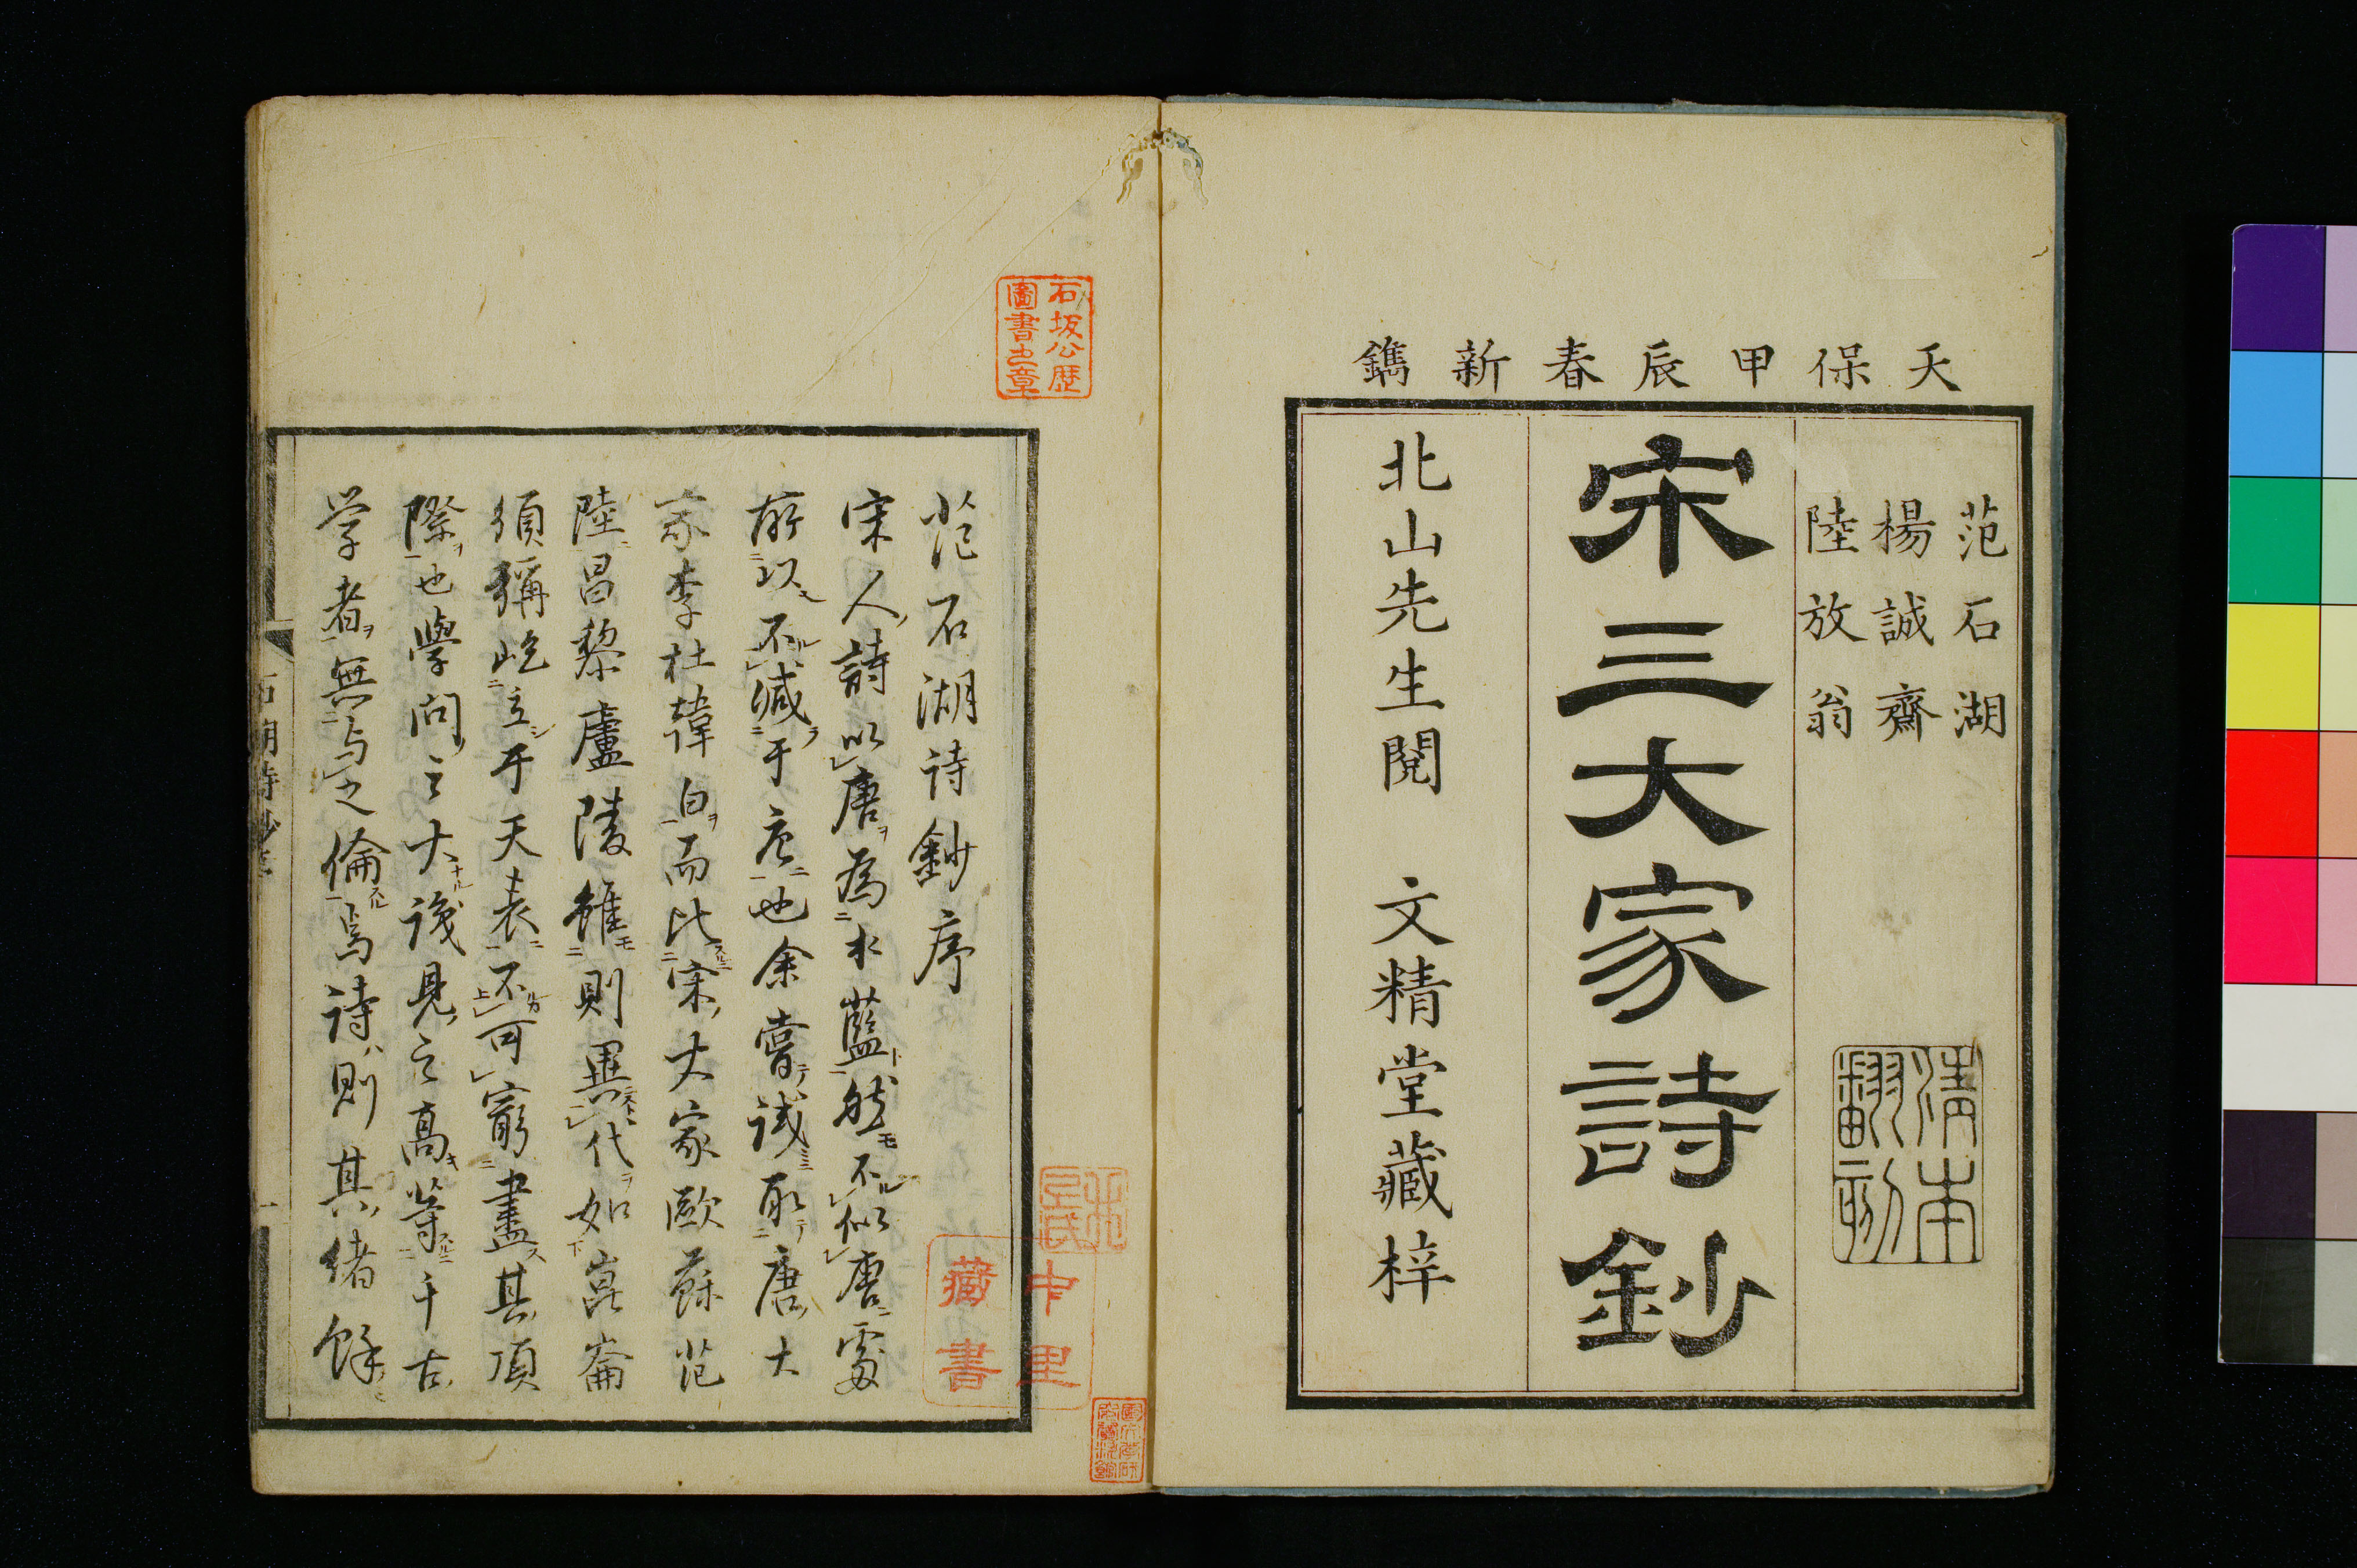 天保甲辰春新鐫
范石湖
楊誠齋
陸放翁
清本
翻刻
宋三大家詩鈔
北山先生閲 文精堂藏梓
石坂公歴
圖書之章
范石湖诗鈔序
宋人詩以唐為木藍然不似唐處
所以不减于唐也余嘗試取唐大
家李杜韓白而比宋大家歐蘇范
陸昌黎廬陵雖則異代如崑崙
須彌屹立乎天表不可窮盡其頂
際也學問之大識見之高等千古
学者無与之倫焉诗則其緒餘
中里
藏書